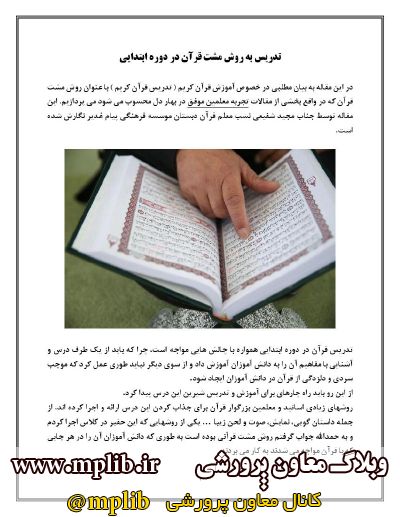 تدریس به روش مشت قرآن در دوره ابتدایی
در این مقاله به بیان مطلبی در خصوص آموزش قرآن کریم ( تدریس قرآن کریم ) با عنوان روش مشت
قرآن که در واقع بخشی از مقالات تجربه معلمین موفق در بهار دل محسوب می شود می پردازیم. این
مقاله توسط جناب مجید شفیعی نسب معلم قرآن دبستان موسسه فرهنگی پیام غدیر نگارش شده
است.
تدریس قرآن در دوره ابتدایی همواره با چالش هایی مواجه است، چرا که باید از یک طرف درس و
آشنایی با مفاهیم آن را به دانش آموزان آموزش داد و از سوی دیگر نباید طوری عمل کرد که موجب
سردی و دلزدگی از قرآن در دانش آموزان ایجاد شود.
از این رو باید راه چارهای برای آموزش و تدریس شیرین این درس پیدا کرد.
روشهای زیادی اساتید و معلمین بزرگوار قرآن برای جذاب کردن این درس ارائه و اجرا کرده اند. از
جمله داستان گویی، نمایش، صوت و لحن زیبا ... یکی از روشهایی که این حقیر در کلاس اجرا کردم
و به حمدالله جواب گرفتم روش مشت قرآنی بوده است به طوری که دانش آموزان آن را در هر جایی
که با قرآن مواجه می شدند به کار می بردند.
وبلاگ معاون پرورشی www.mplib.ir
کانال معاون پرورشی @mplib